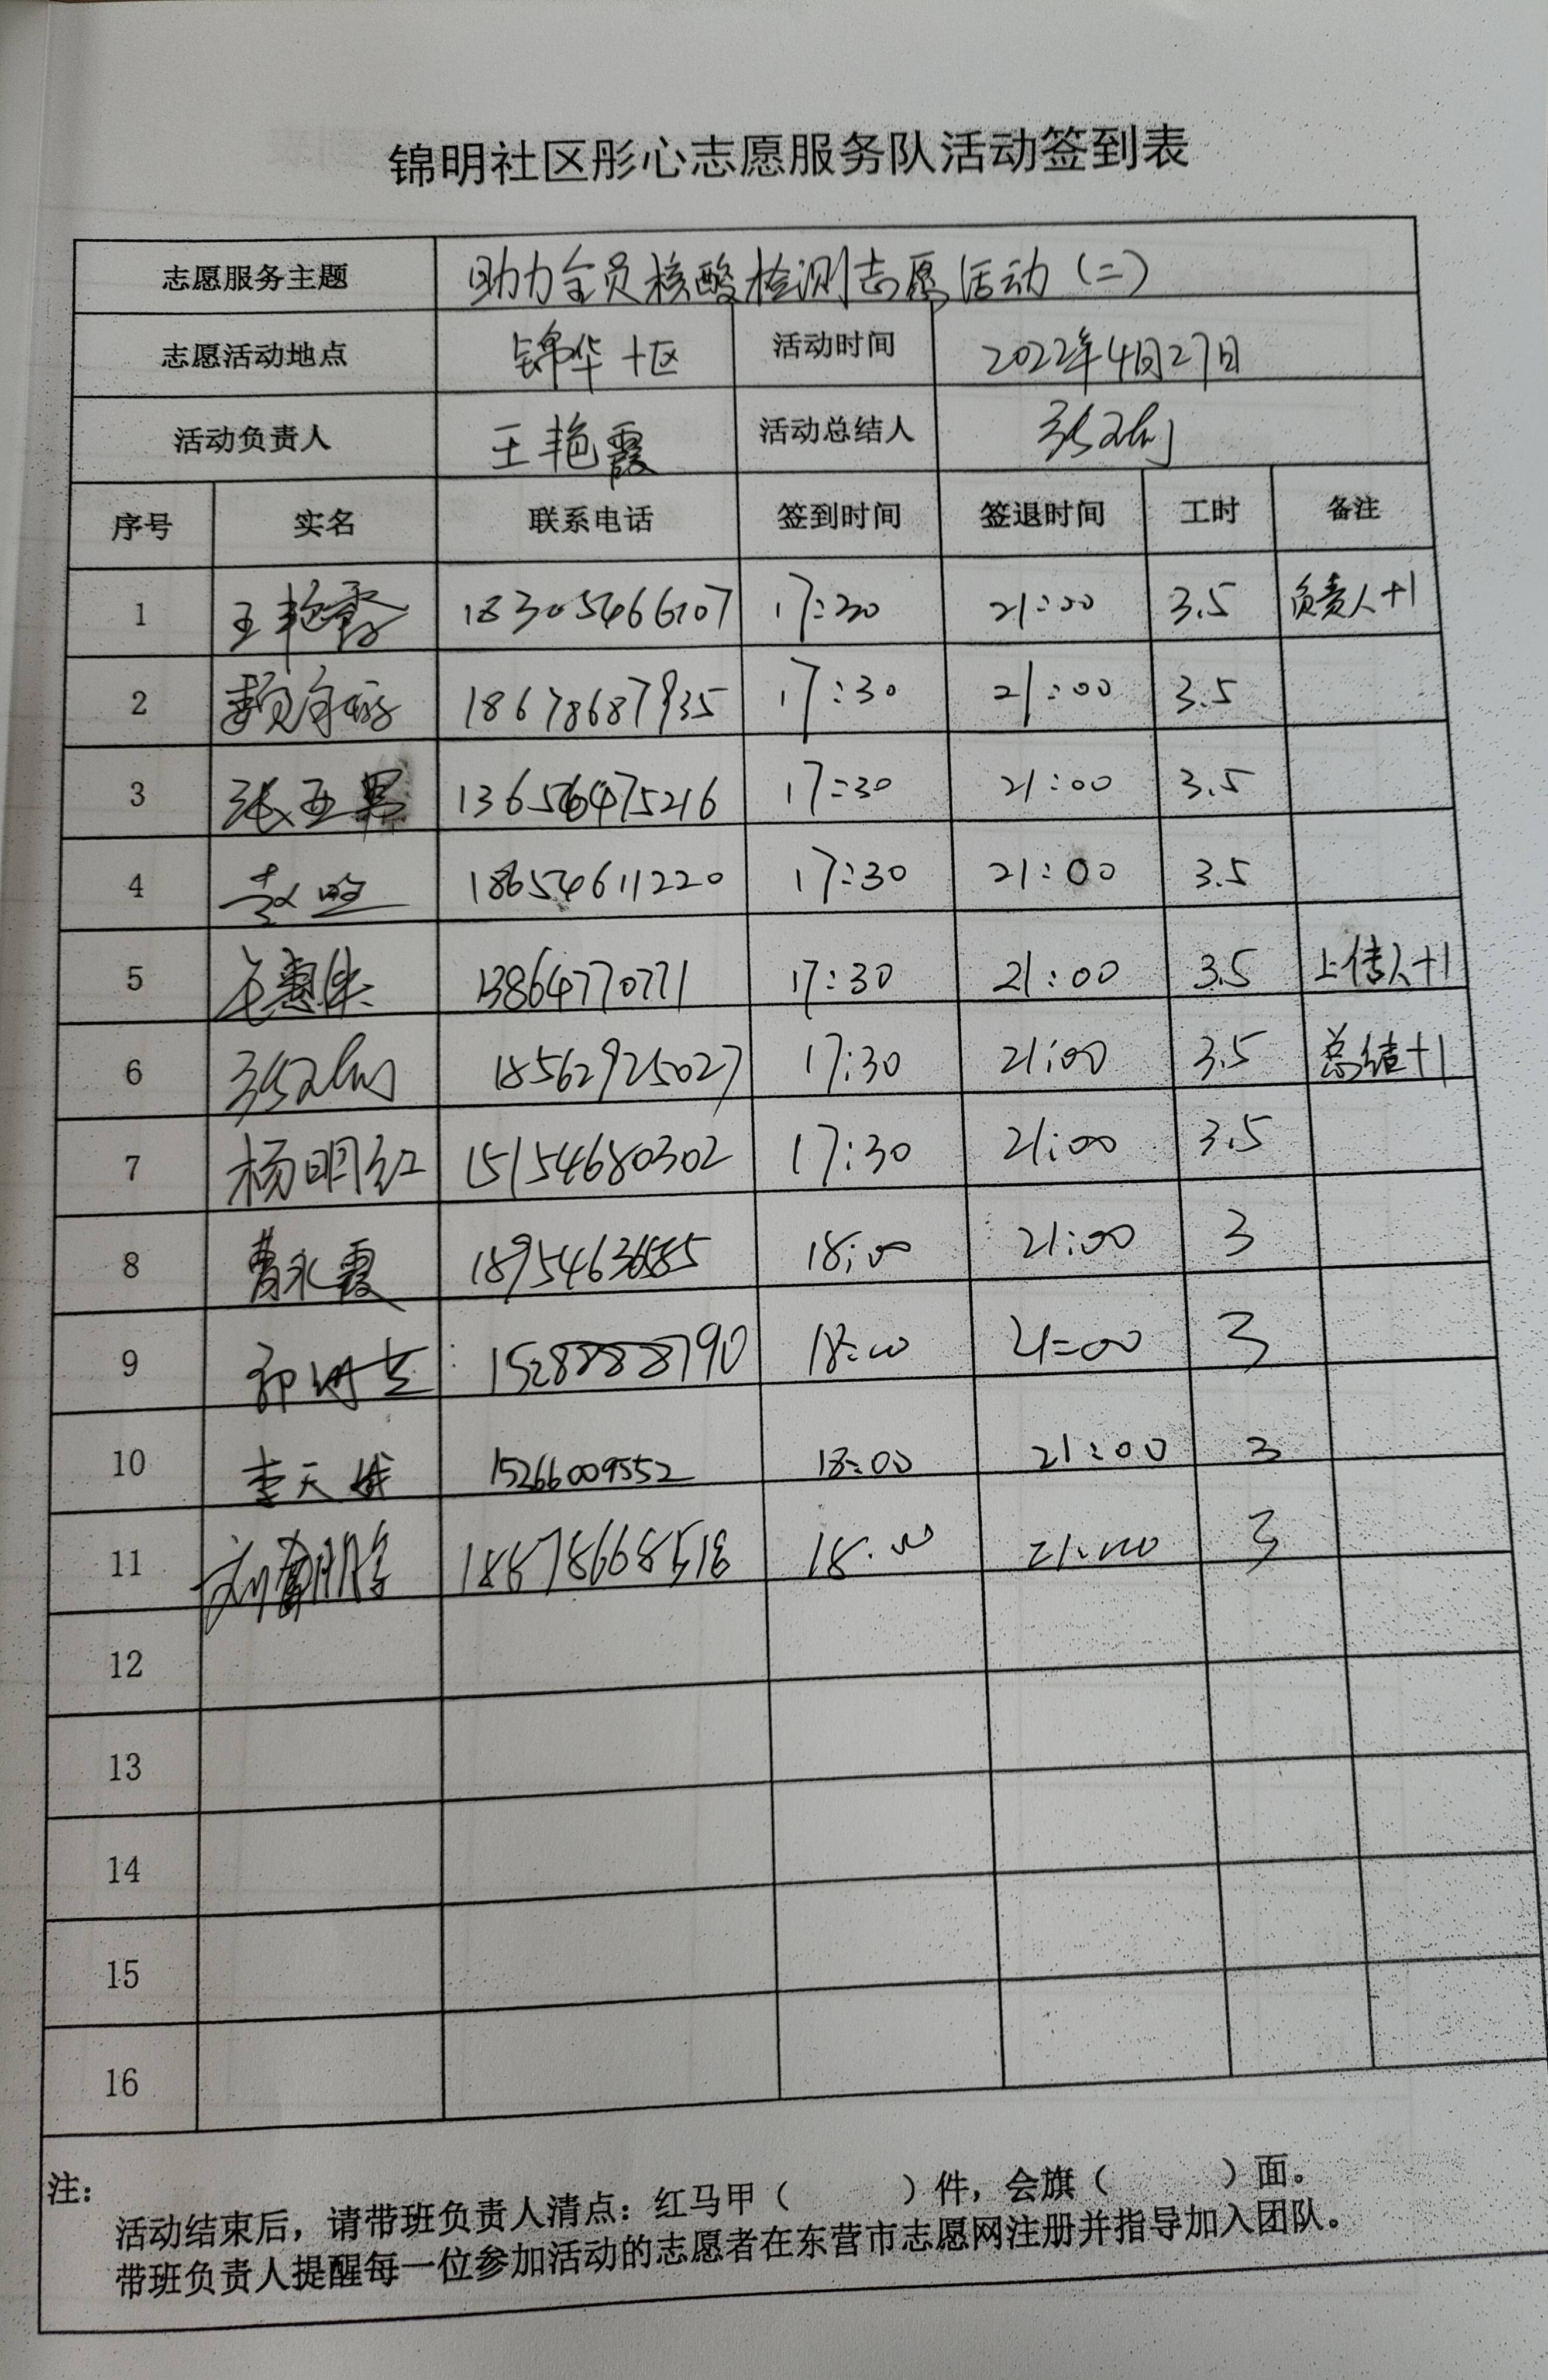 锦明社区彤心志愿服务队活动签到表
志愿服务主题 助力全员核酸检测志愿活动（二）
志愿活动地点 锦华十区 活动时间 2022年4月27日
活动负责人 王艳霞 活动总结人
序号 实名 联系电话 签到时间 签退时间 工时 备注
1 王艳霞 17:30 21:00 3.5 负责人+1
2 18678687935 17:30 21:00 3.5
3 张亚男 17:30 21:00 3.5
4 18654611220 17:30 21:00 3.5
5 13864770771 17:30 21:00 3.5 上传人+1
6 18562925027 17:30 21:00 3.5 总结+1
7 杨明红 15154680302 17:30 21:00 3.5
8 曹永霞 18:00 21:00 3
9 15288888790 18:00 21:00 3
10 李天娥 15266009552 18:00 21:00 3
11 18:00 21:00 3
12
13
14
15
16
注：
活动结束后，请带班负责人清点：红马甲（ ）件，会旗（ ）面。
带班负责人提醒每一位参加活动的志愿者在东营市志愿网注册并指导加入团队。